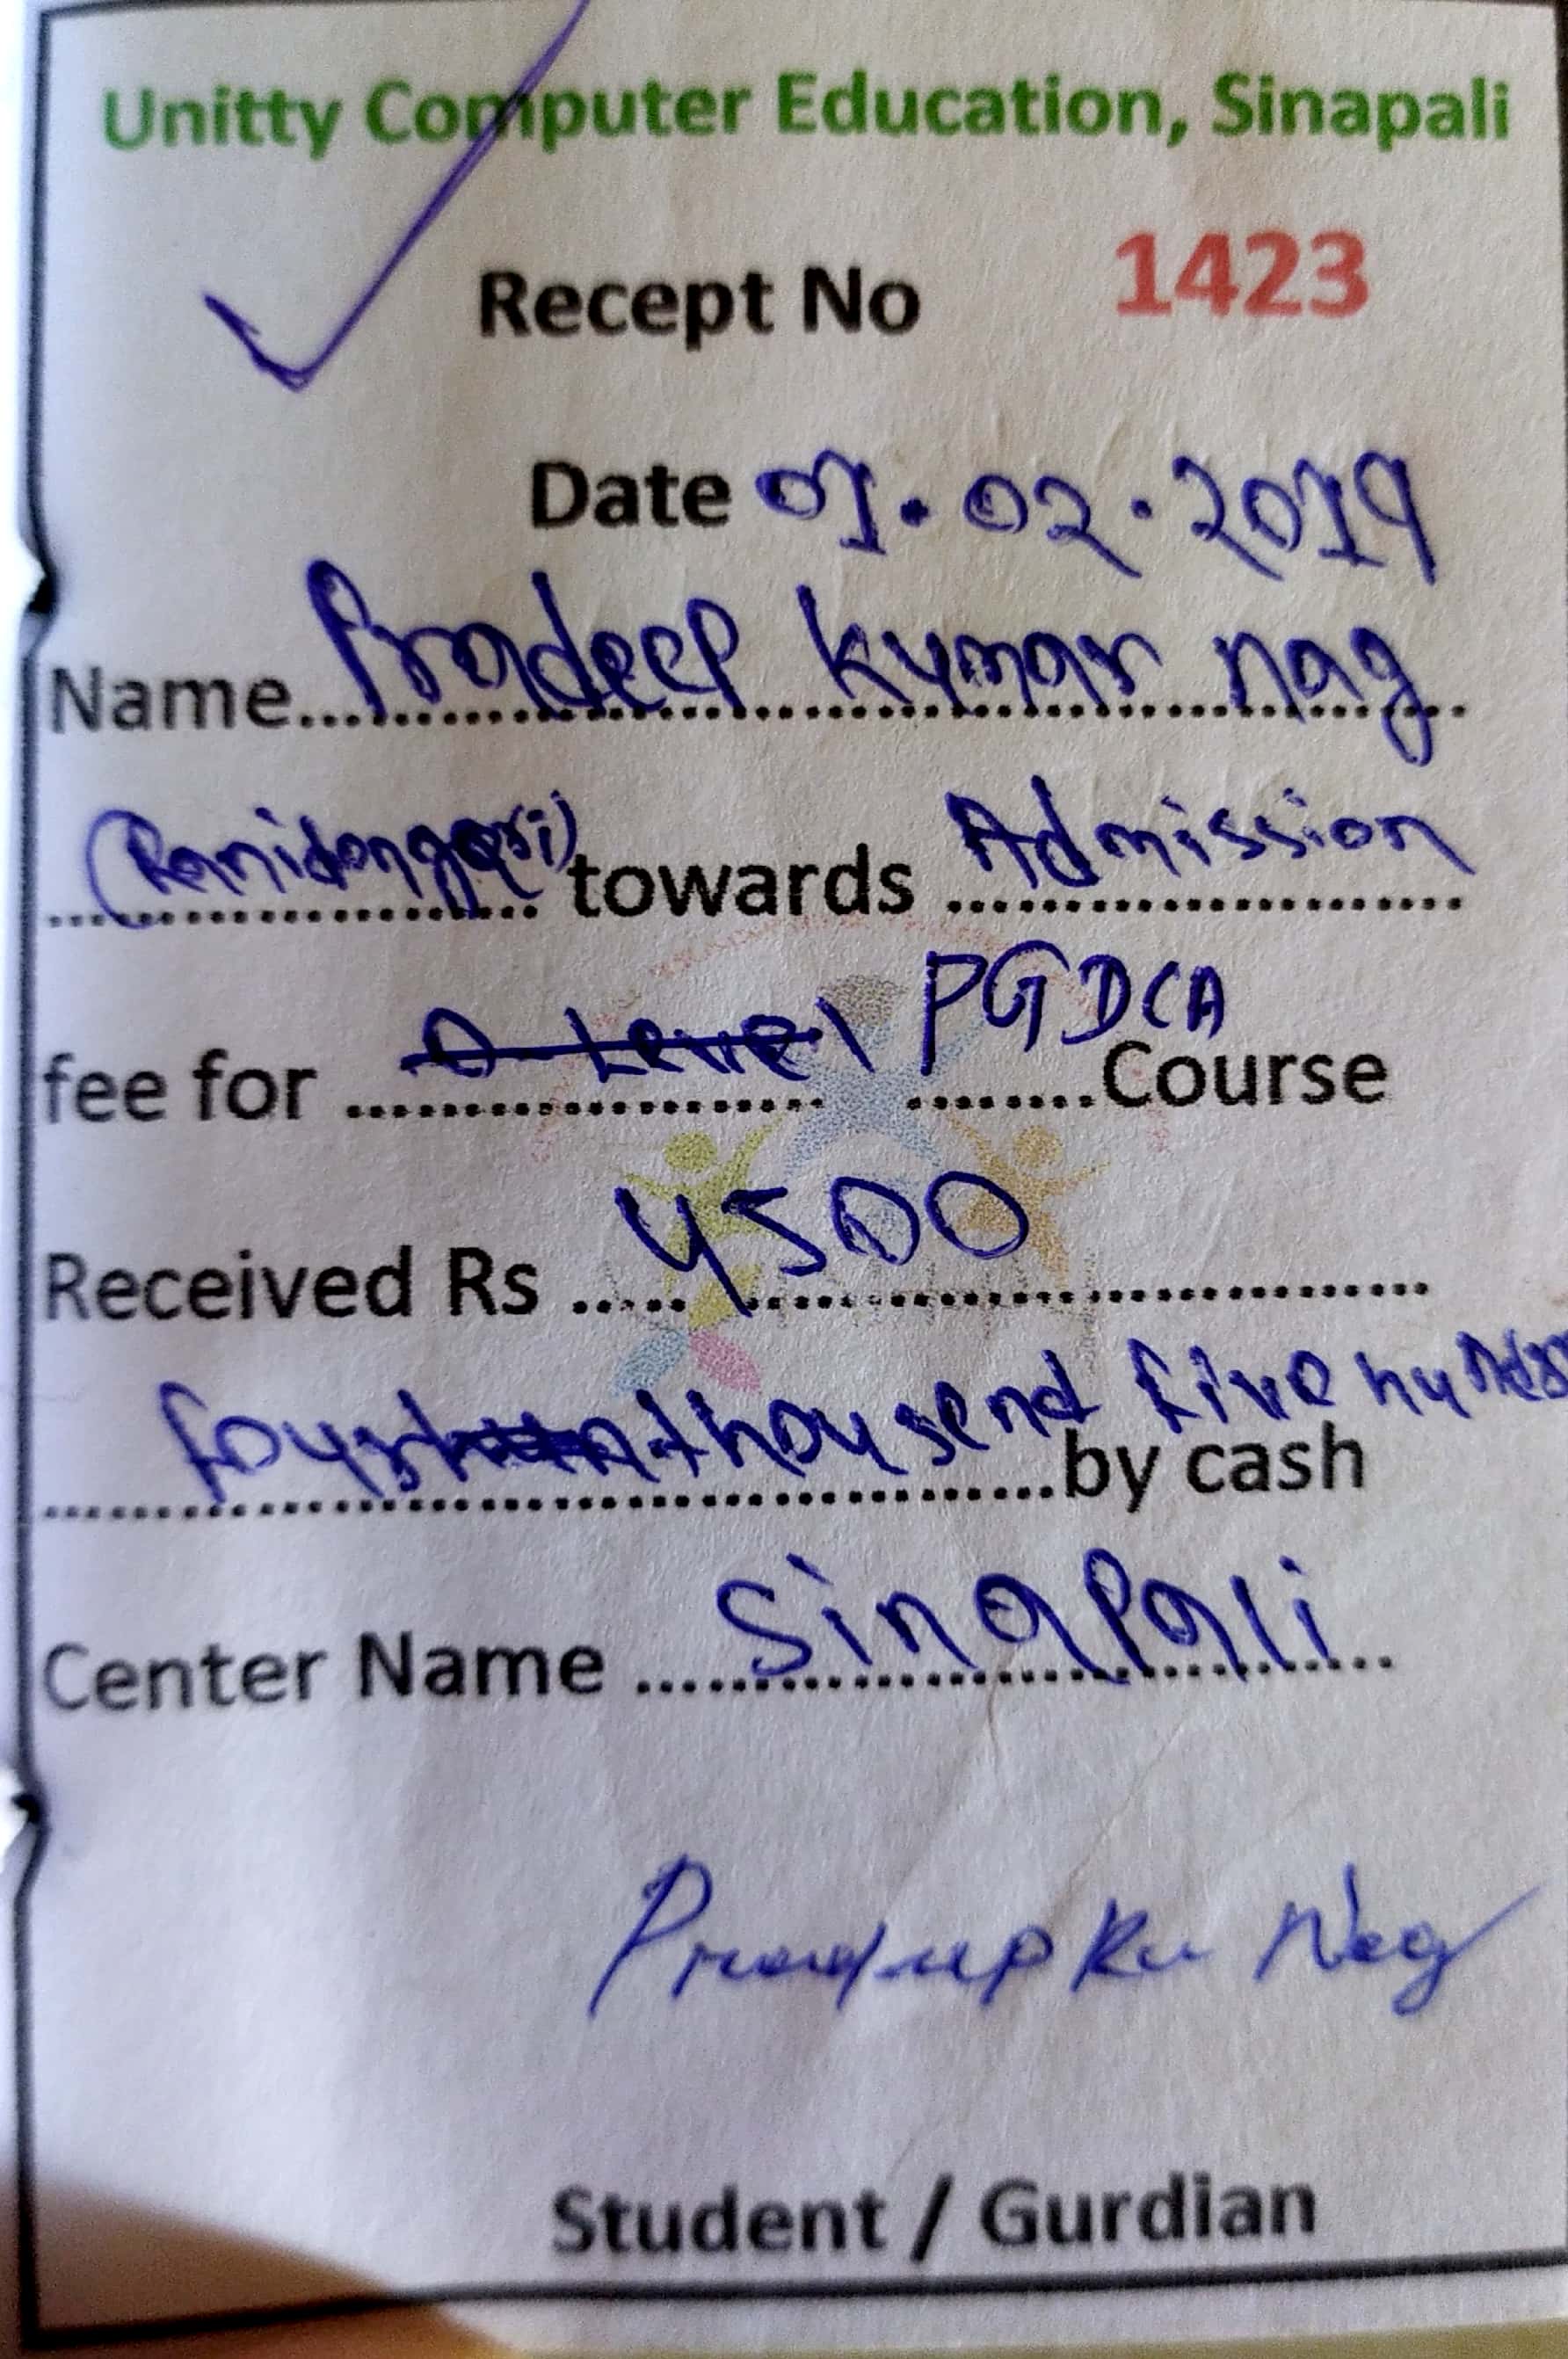 Unitty Computer Education, Sinapali
Recept No 1423
Date 01.02.2019
Name... Pradeep kumar nag
(Ranidongari) towards Admission
fee for O-Level PGDCA Course
Received Rs 4500
four thousend five hundr
by cash
Center Name Sinapali
Pradeep Ku Nag
Student / Gurdian